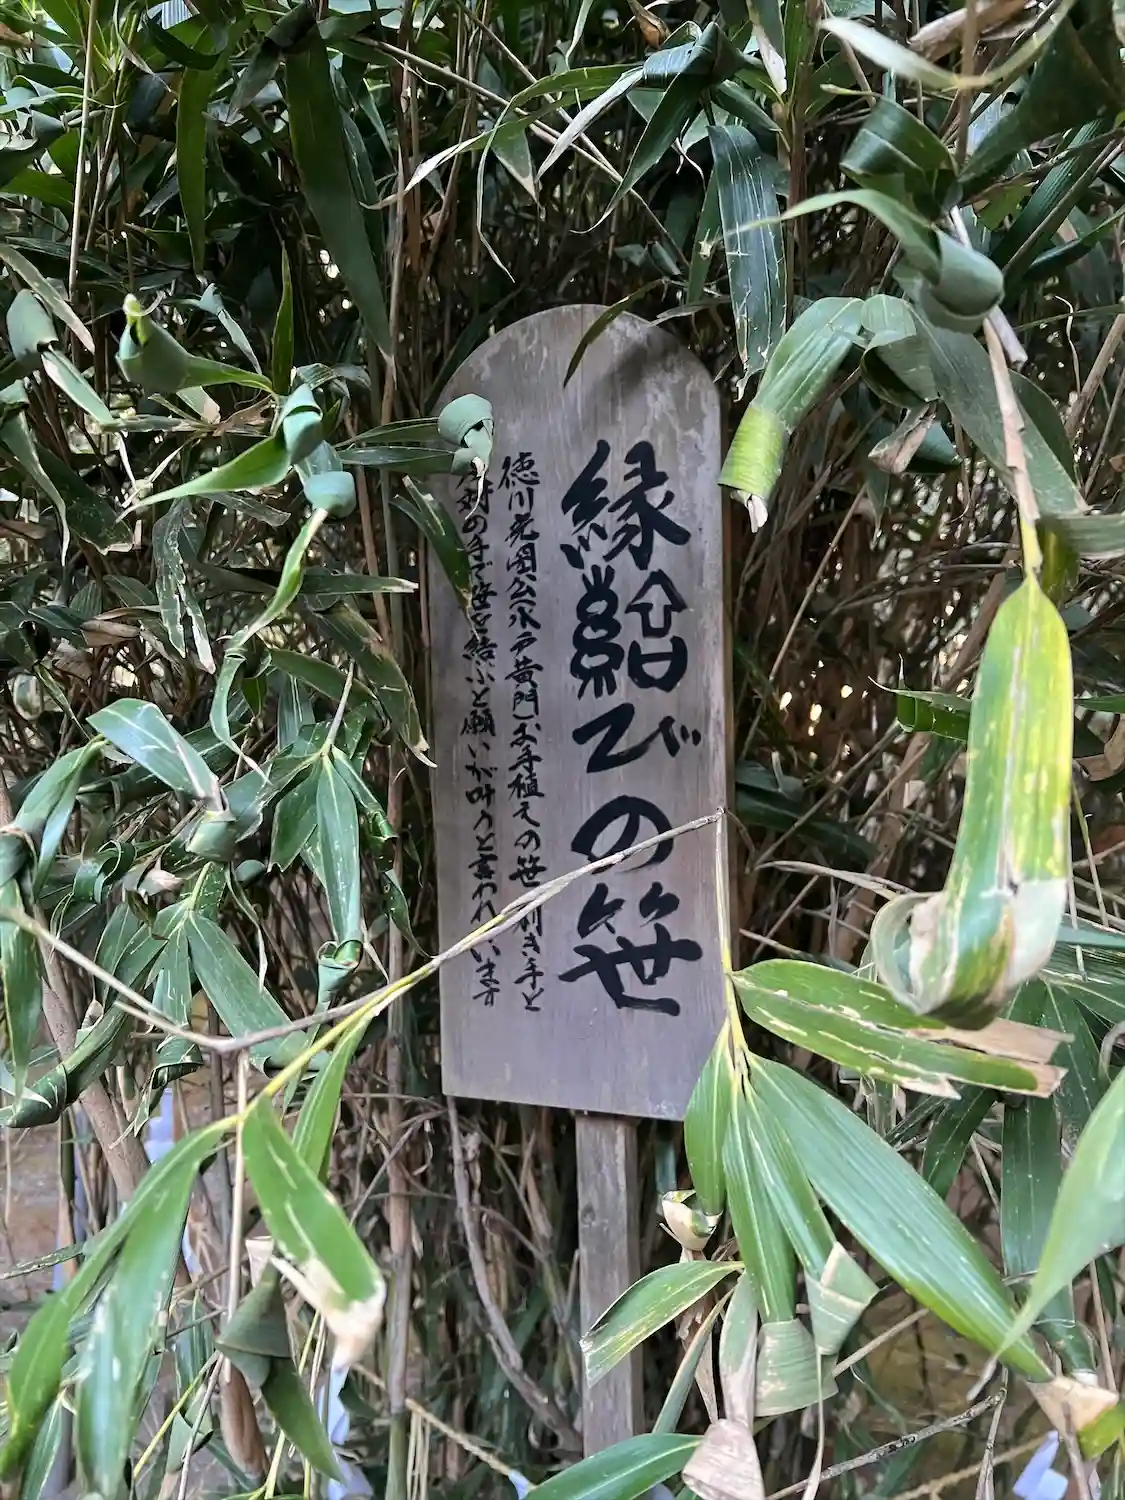 縁結びの笹
徳川光圀公(水戸黄門)お手植えの笹 利き手と
対の手で笹を結ぶと願いが叶うと言われています